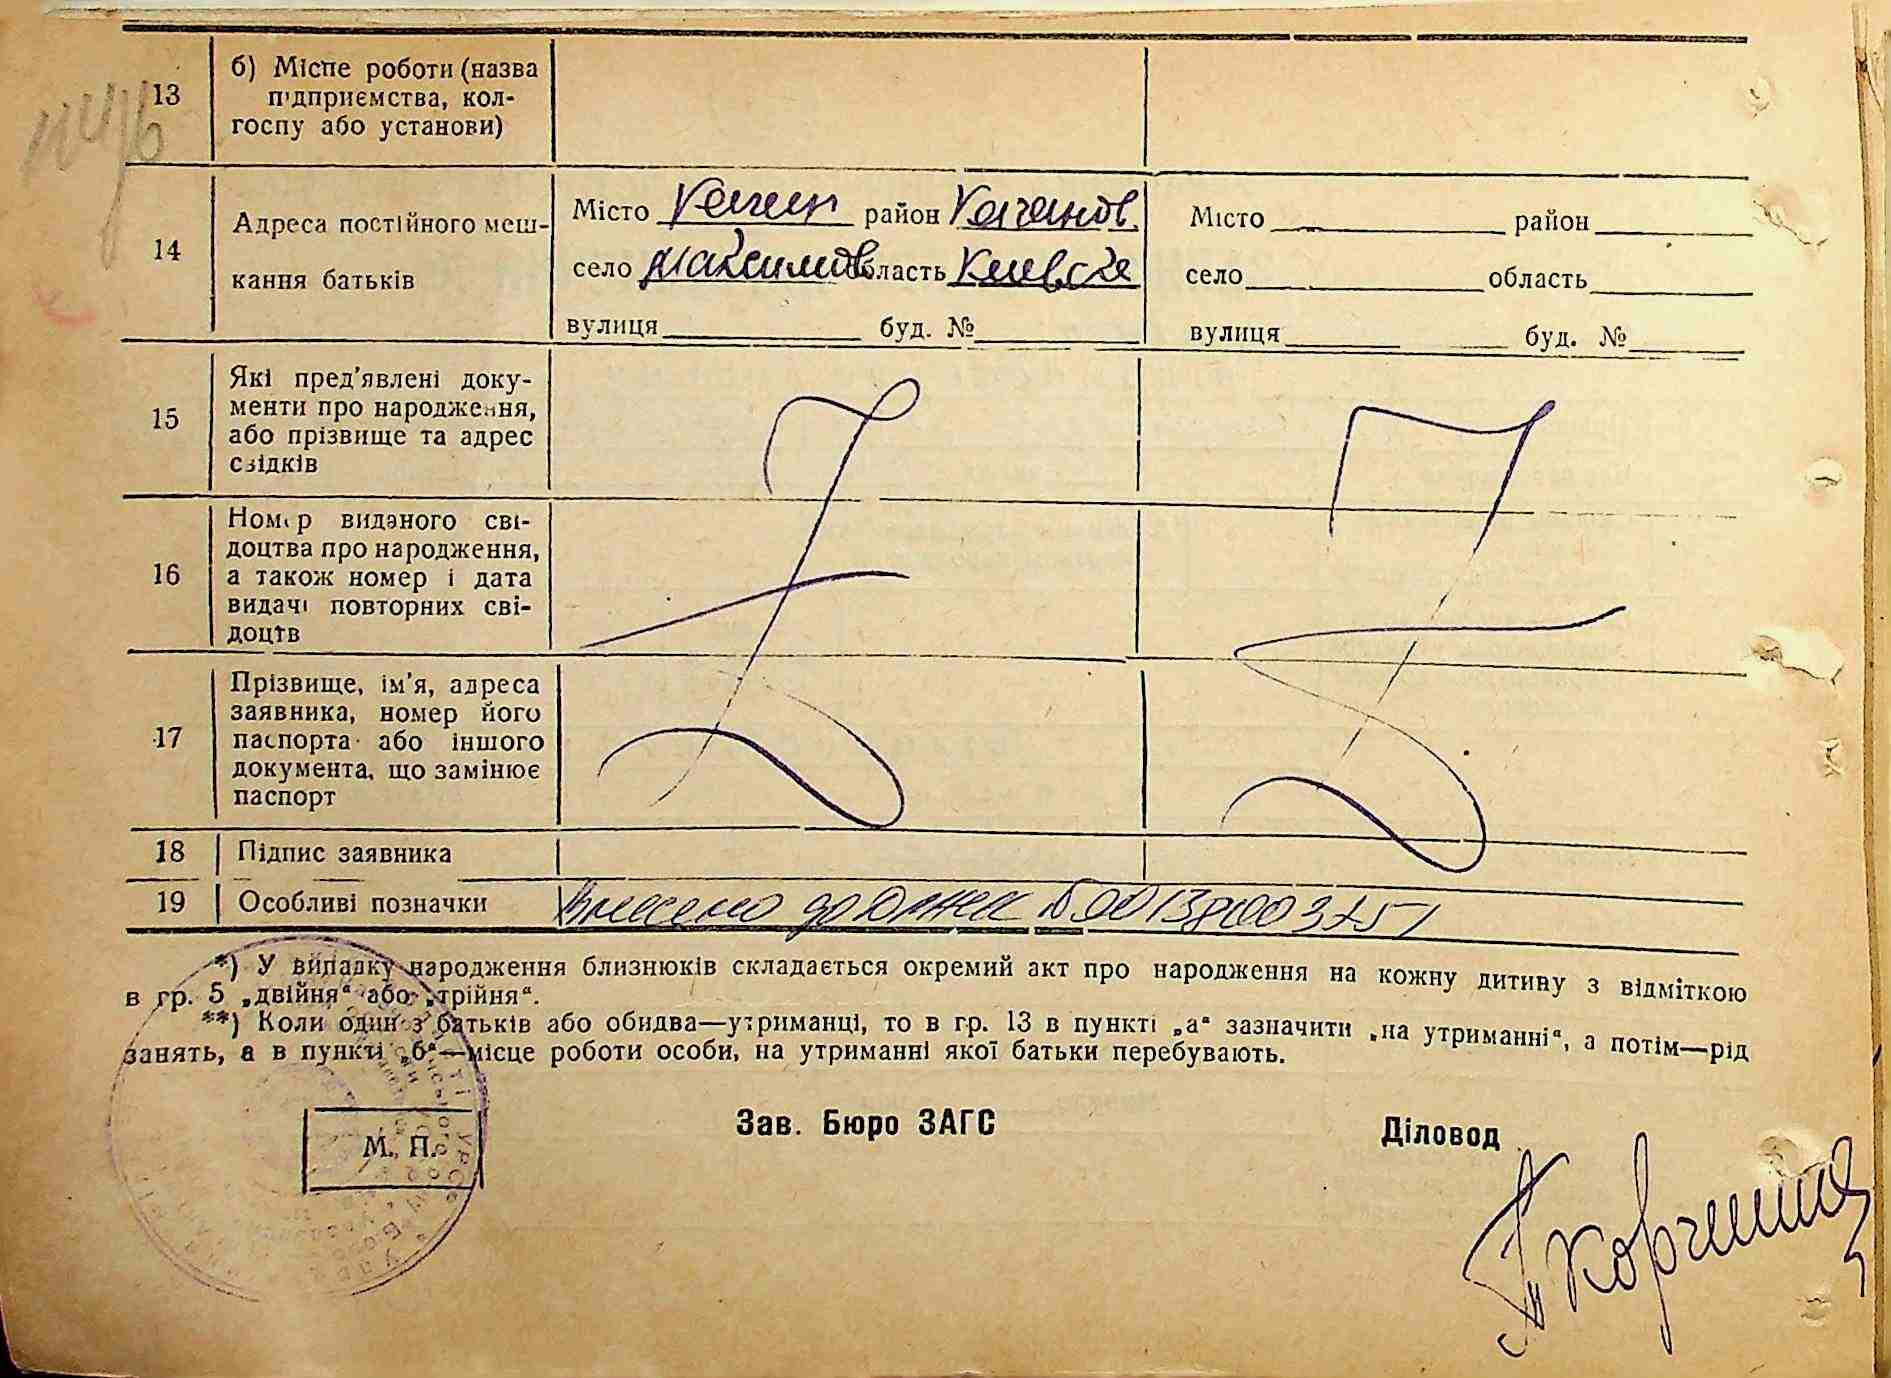 13
б) Місце роботи (назва
підприємства, кол-
госпу або установи)
14
Адреса постійного меш-
кання батьків
Місто район
село область
вулиця буд. №
Місто район
село область
вулиця буд. №
15
Які пред’явлені доку-
менти про народження,
або прізвище та адрес
свідків
16
Номер виданого сві-
доцтва про народження,
а також номер і дата
видачі повторних сві-
доцтв
17
Прізвище, ім’я, адреса
заявника, номер його
паспорта або іншого
документа, що замінює
паспорт
18 Підпис заявника
19 Особливі позначки Внесено до
*) У випадку народження близнюків складається окремий акт про народження на кожну дитину з відміткою
в гр. 5 „двійня“ або „трійня“.
**) Коли один з батьків або обидва—утриманці, то в гр. 13 в пункті „а“ зазначити „на утриманні“, а потім—рід
занять, а в пункті „б“—місце роботи особи, на утриманні якої батьки перебувають.
М. П.
Зав. Бюро ЗАГС
Діловод